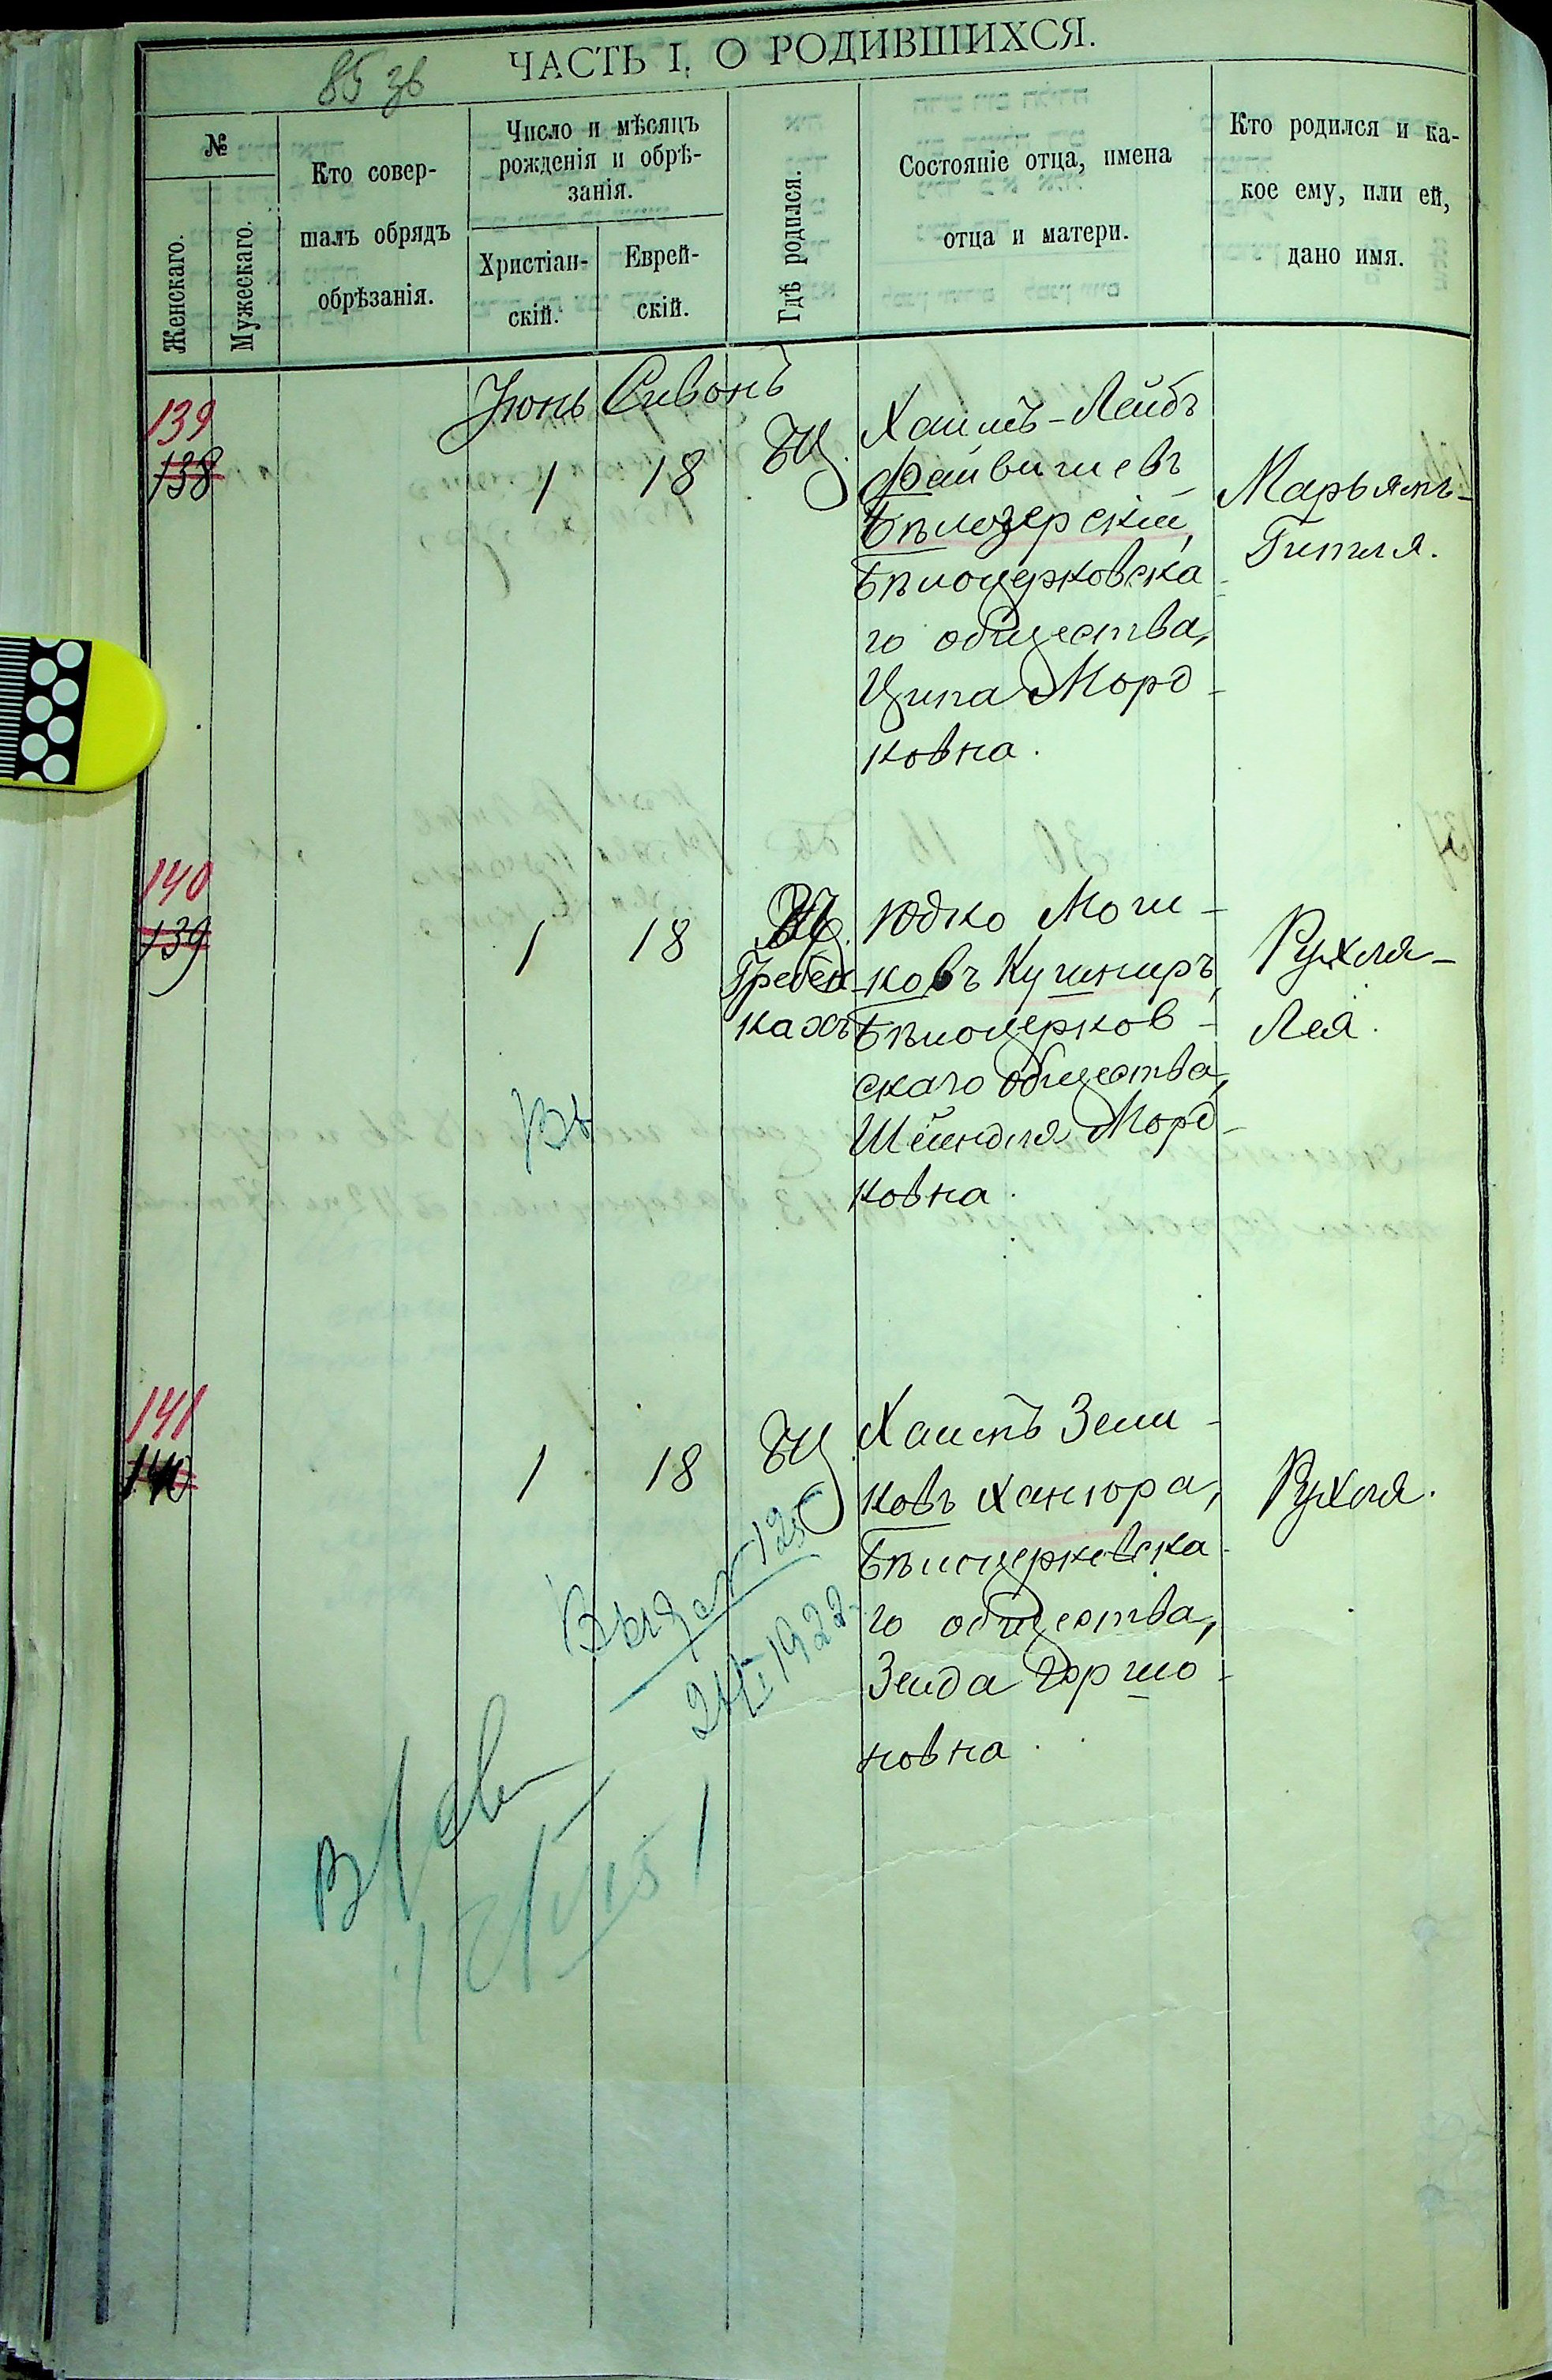 85 зв
ЧАСТЬ I, О РОДИВШИХСЯ.
№
Женскаго.
Мужескаго.
Кто совер-
шалъ обрядъ
обрѣзанія.
Число и мѣсяцъ
рожденія и обрѣ-
занія.
Христіан-
скій.
Еврей-
скій.
Гдѣ родился.
Состояніе отца, имена
отца и матери.
Кто родился и ка-
кое ему, или ей,
дано имя.
Іюнь Сивонъ
139
138
1
18
БЦ.
Хаимъ-Лейбъ
Файвишевъ
Бѣлозерскій,
Бѣлоцерковска-
го общества,
Ципа Морд-
ковна.
Марьямъ-
Гитля.
140
139
1
18
Гребен-
кахъ
Юдко Моши-
ковъ Кушниръ,
Бѣлоцерков-
скаго общества,
Шейндля Морд-
ковна.
Рухля-
Лея.
Вы
141
140
1
18
БЦ
Хаимъ Зели-
ковъ Ханюра,
Бѣлоцерковска-
го общества,
Зелда Гершо-
новна.
Рухля.
1922